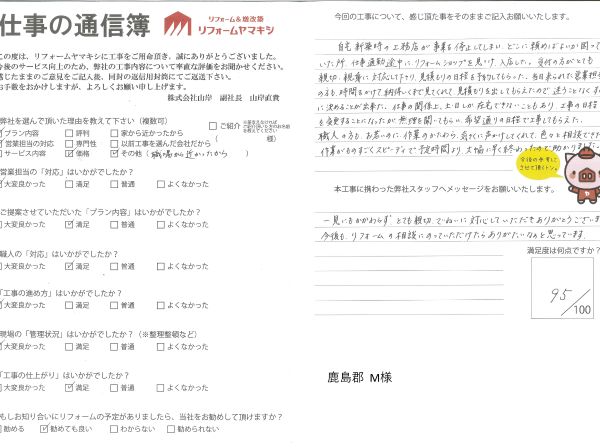 仕事の通信簿
リフォーム&増改築
リフォームヤマキシ
この度は、リフォームヤマキシに工事をご用命頂き、誠にありがとうございました。
今後のサービス向上のため、弊社の工事内容について率直な評価をお聞かせください。
感じたままのご意見をご記入後、同封の返信用封筒にてご返送下さい。
お手数をおかけしますが、よろしくお願い申し上げます。
株式会社山岸 副社長 山岸直貴
弊社を選んで頂いた理由を教えて下さい(複数可)
プラン内容 評判 家から近かったから
営業担当の対応 専門性 以前工事を選んだ会社だから
サービス内容 価格 その他(職場から近かったから)
ご紹介
営業担当の「対応」はいかがでしたか?
大変良かった 満足 普通 よくなかった
ご提案させていただいた「プラン内容」はいかがでしたか?
大変良かった 満足 普通 よくなかった
職人の「対応」はいかがでしたか?
大変良かった 満足 普通 よくなかった
「工事の進め方」はいかがでしたか?
大変良かった 満足 普通 よくなかった
現場の「管理状況」はいかがでしたか?(※整理整頓など)
大変良かった 満足 普通 よくなかった
「工事の仕上がり」はいかがでしたか?
大変良かった 満足 普通 よくなかった
もしお知り合いにリフォームの予定がありましたら、当社をお勧めして頂けますか?
勧める 勧めても良い わからない 勧められない
今回の工事について、感じ頂た事をそのままご記入お願いいたします。
自宅新築時の工務店が事業を停止してしまい どこに頼めばよいか困って
いた所、仕事通勤途中に、リフォームショップを見い
親切、親身に対応して下さり、見積もりの日程も
のも時間をかけて納得いくまで見てくれて、見積もりを出してもらえたので、迷うことなく
に決めることが出来た。仕事の関係上、土・日しか在宅できないこともあり、工事の日程
も変更することになったが無理を聞いてもらい、希望通りの日程で工事してもらえた。
職人の方も、お若いのに、作業のかたわら、気さくに声かけしてくれて、色々と相談できた
作業がものすごくスピーディで予定時間より、大幅に早く終わったので助かりました。
今後の参考にさせて頂くトン。
本工事に携わった弊社スタッフへメッセージをお願いいたします。
一見にもかかわらず、とても親切、ていねいに対応していただきありがとうございま
今後も、リフォームの相談にのっていただけたらありがたいなぁと思っています。
満足度は何点ですか?
95
/100
鹿島郡 M様